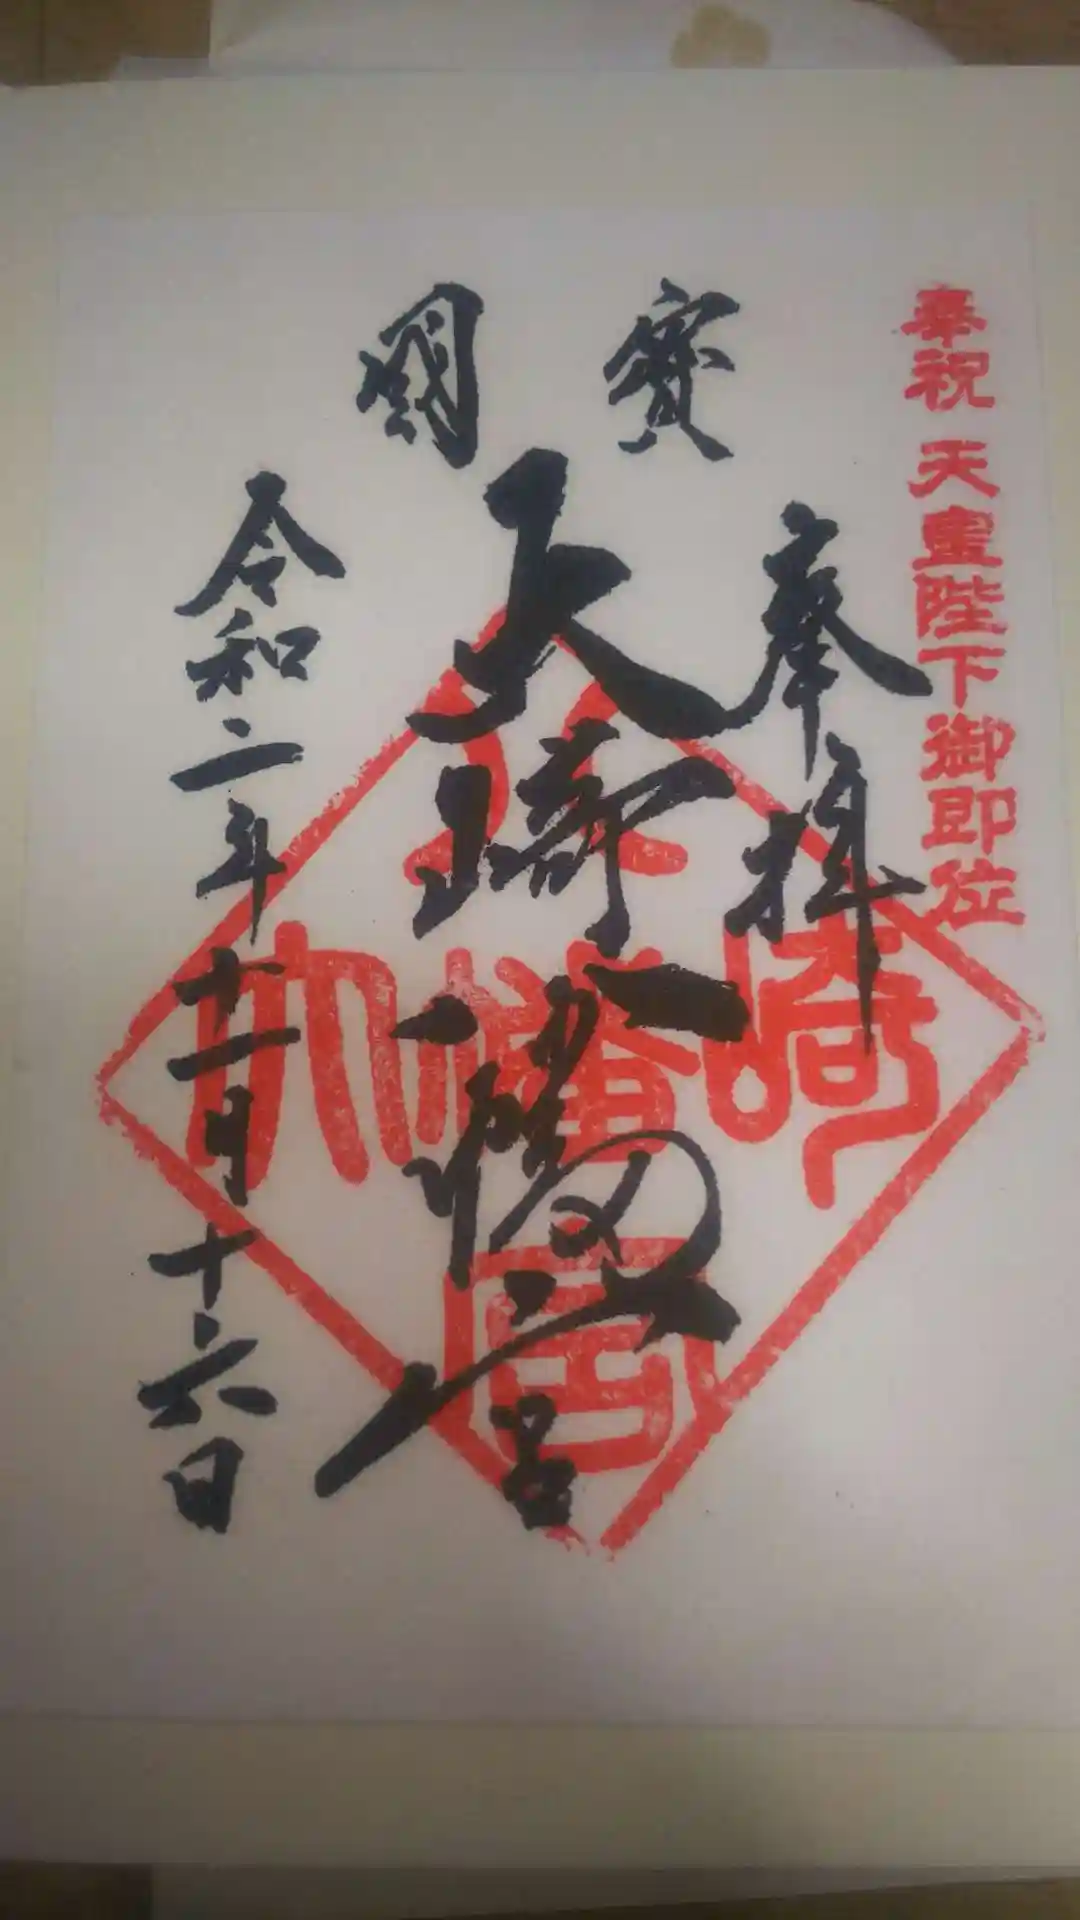 奉祝 天皇陛下御即位
奉拝
國寶
大崎八幡宮
八
大幡崎
宮
令和二年十一月十六日